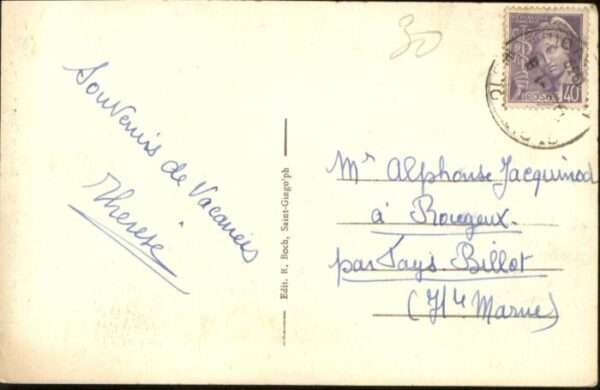 30
40
Souvenirs de Vacances
Thérèse
Edit. R. Boch, Saint-Gingo'ph
Mr Alphonse Jacquinod
à Rougeux.
par Fays-Billot
(Hte Marne)